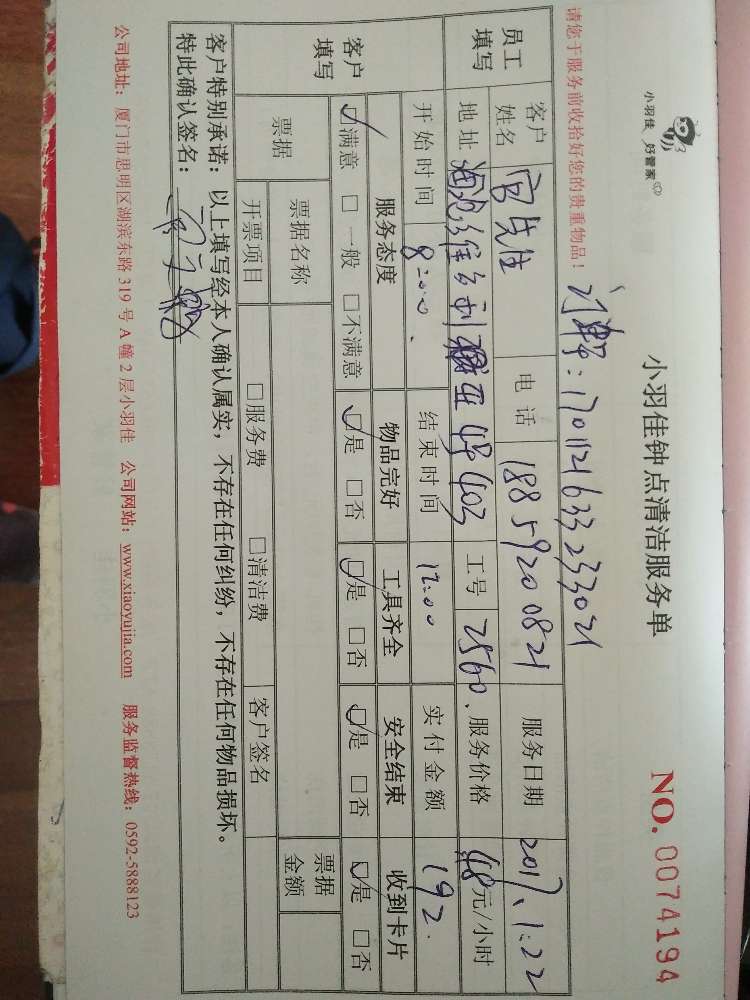 小羽佳 好管家
小羽佳钟点清洁服务单
NO. 0074194
请您于服务前收拾好您的贵重物品！
1701121633233021
员工填写
客户姓名 先生 电话 18859200821 服务日期 2017.1.22
地址 403 工号 2560 服务价格 48元/小时
开始时间 8:00 结束时间 12:00 实付金额 192
客户填写
服务态度 物品完好 工具齐全 安全结束 收到卡片
☑满意 □一般 □不满意 ☑是 □否 ☑是 □否 ☑是 □否 ☑是 □否
票据 票据名称 票据金额
开票项目 □服务费 □清洁费 客户签名
客户特别承诺：以上填写经本人确认属实，不存在任何纠纷，不存在任何物品损坏。
特此确认签名：
公司地址：厦门市思明区湖滨东路 319 号 A 幢 2 层小羽佳 公司网站：www.xiaoyujia.com 服务监督热线：0592-5888123